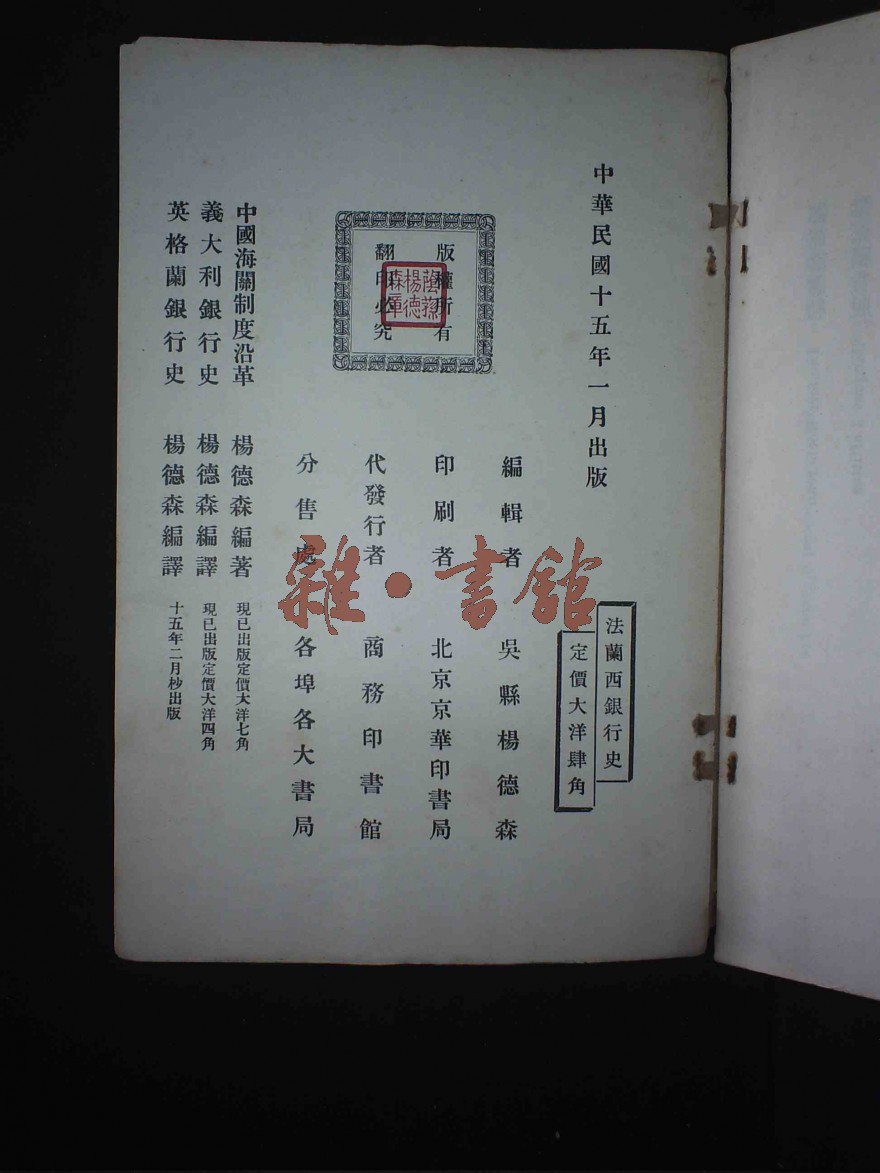 中華民國十五年一月出版
法蘭西銀行史
定價大洋肆角
編輯者 吳縣楊德森
印刷者 北京京華印書局
代發行者 商務印書館
分售處 各埠各大書局
版權所有
翻印必究
蔭孫
楊德
森章
中國海關制度沿革 楊德森編著 現已出版定價大洋七角
義大利銀行史 楊德森編譯 現已出版定價大洋四角
英格蘭銀行史 楊德森編譯 十五年二月杪出版
雜·書館